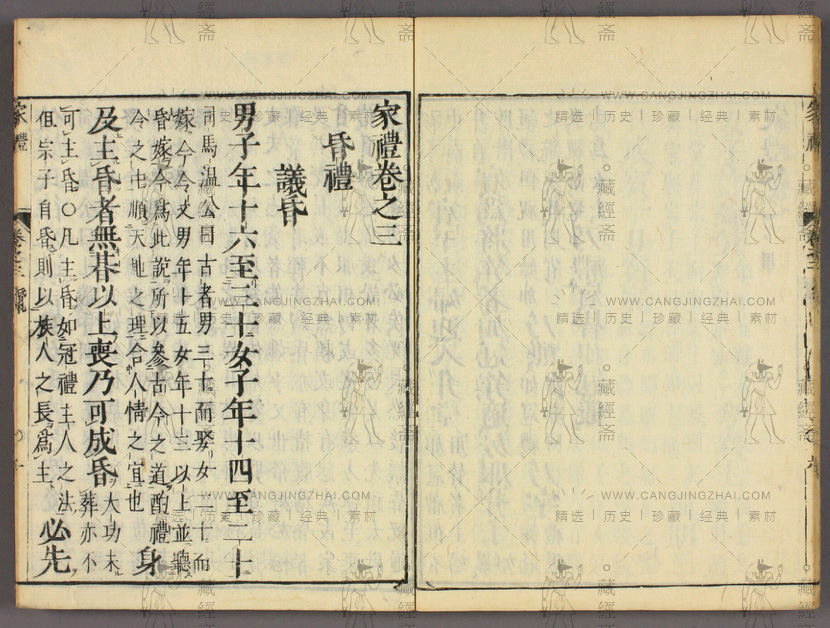 家禮卷之三
昏禮
議昏
男子年十六至三十女子年十四至二十
司馬温公曰古者男三十而娶女二十而
嫁今令文男年十五女年十三以上並聽
昏嫁今爲此說所以參古今之道酌禮
令之中順天地之理合人情之宜也
身
及主昏者無朞以上喪乃可成昏
大功未
葬亦不
可主昏〇凡主昏如冠禮主人之法
但宗子自昏則以族人之長爲主
必先
家禮
卷之三
家禮
WWW.CANGJINGZHAI.COM
精选 | 历史 | 珍藏 | 经典 | 素材
藏經斋